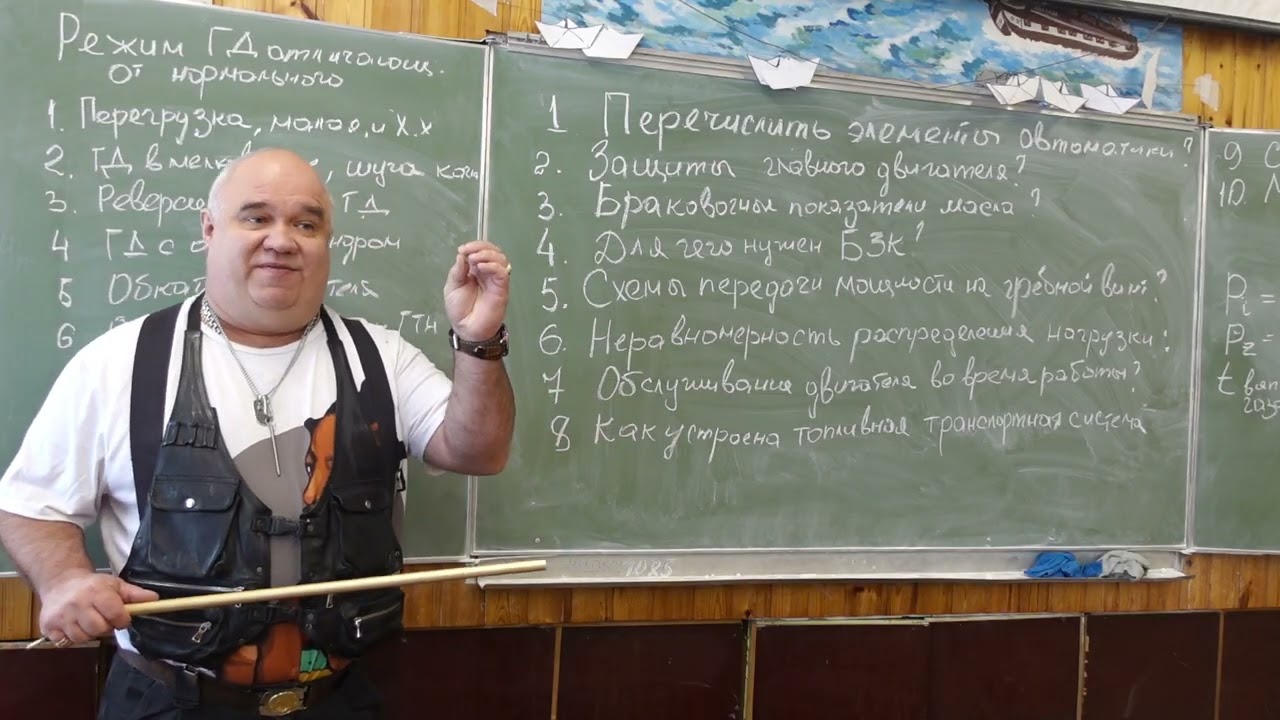 Режим ГД отличающ.
от нормального
1. Перегрузка, малая, и Х.х
2. ГД в мелков е, шуга
3. Реверси ГД
4 ГД с о ндром
5 Обкат теля
6 ГТН
1 Перечислить элементы автоматики?
2. Защиты главного двигателя?
3. Браковочные показатели масла?
4. Для чего нужен БЗК?
5. Схемы передачи мощности на гребной винт?
6. Неравномерность распределения нагрузки?
7 Обслуживание двигателя во время работы?
8 Как устроена топливная транспортная система
9 С
10. Л
Pi =
Pz =
t вып
газ